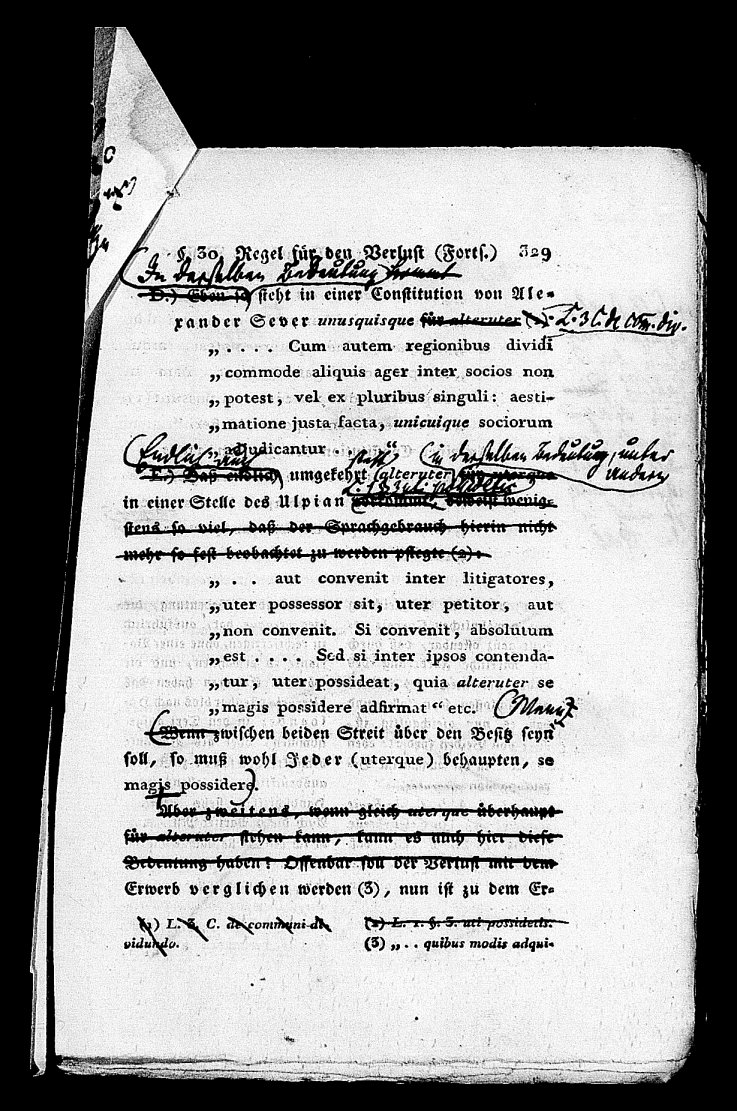 §. 30. Regel für den Verlust (Forts.) 329
In derselben Bedeutung kommt
D.) Eben so steht in einer Constitution von Ale-
xander Sever unusquisque für alteruter (1): L. 3 C. de com. div.
„.... Cum autem regionibus dividi
„commode aliquis ager inter socios non
„potest, vel ex pluribus singuli: aesti-
„matione justa facta, unicuique sociorum
„adjudicantur . . . “
Endlich auch statt in derselben Bedeutung, unter
andern
E.) Daß endlich umgekehrt alteruter für uterque
in einer Stelle des Ulpian vorkommt, beweist wenig-
stens so viel, daß der Sprachgebrauch hierin nicht
mehr so fest beobachtet zu werden pflegte (2):
„. . aut convenit inter litigatores,
„uter possessor sit, uter petitor, aut
„non convenit. Si convenit, absolutum
„est .... Sed si inter ipsos contenda-
„tur, uter possideat, quia alteruter se
„magis possidere adfirmat“ etc. (Wenn
Wenn zwischen beiden Streit über den Besitz seyn
soll, so muß wohl Jeder (uterque) behaupten, se
magis possidere).
Aber zweitens, wenn gleich uterque überhaupt
für alteruter stehen kann, kann es auch hier diese
Bedeutung haben? Offenbar soll der Verlust mit dem
Erwerb verglichen werden (3), nun ist zu dem Er-
(1) L. 3. C. de communi di-
vidundo.
(2) L. 1. §. 3. uti possidetis.
(3) „. . quibus modis adqui-